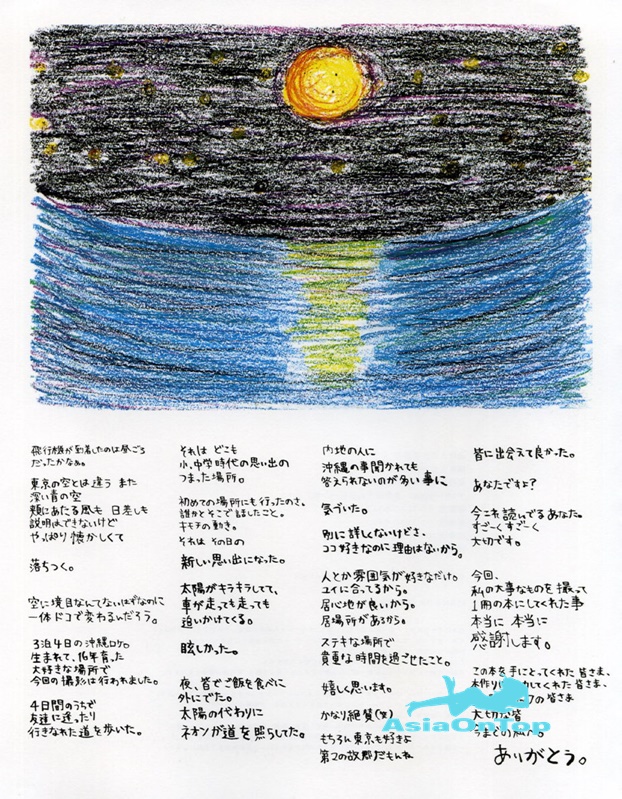 飛行機が到着したのは昼ごろ
だったかなぁ。
東京の空とは違う また
深い青の空
頬にあたる風も 日差しも
説明はできないけど
やっぱり懐かしくて
落ちつく。
空に境目なんてないはずなのに
一体ドコで変わるんだろう。
3泊4日の沖縄ロケ。
生まれて、16年育った
大好きな場所で
今回の撮影は行われました。
4日間のうちで
友達に逢ったり
行きなれた道を歩いた。
それは どこも
小、中学時代の思い出の
つまった場所。
初めての場所にも行ったのさ。
誰かとそこで話したこと。
キモチの動き。
それは その日の
新しい思い出になった。
太陽がキラキラしてて、
車が走っても走っても
追いかけてくる。
眩しかった。
夜、皆でご飯を食べに
外にでた。
太陽の代わりに
ネオンが道を照らしてた。
内地の人に
沖縄の事聞かれても
答えられないのが多い事に
気づいた。
別に詳しくないけどさ、
ココ好きなのに理由はないから。
人とか雰囲気が好きなだけ。
ユイに合ってるから。
居心地が良いから。
居場所があるから。
ステキな場所で
貴重な時間を過ごせたこと。
嬉しく思います。
かなり絶賛(笑)
もちろん東京も好きよ
第2の故郷だもんね
皆に出会えて良かった。
あなたですよ?
今これ読んでるあなた。
すごーくすごーく
大切です。
今回、
私の大事なものを撮って
1冊の本にしてくれた事
本当に 本当に
感謝します。
この本を手にとってくれた 皆さま、
本作りに くれた 皆さま、
の皆さま
大切な皆
ありがとう。
AsiaOnTop